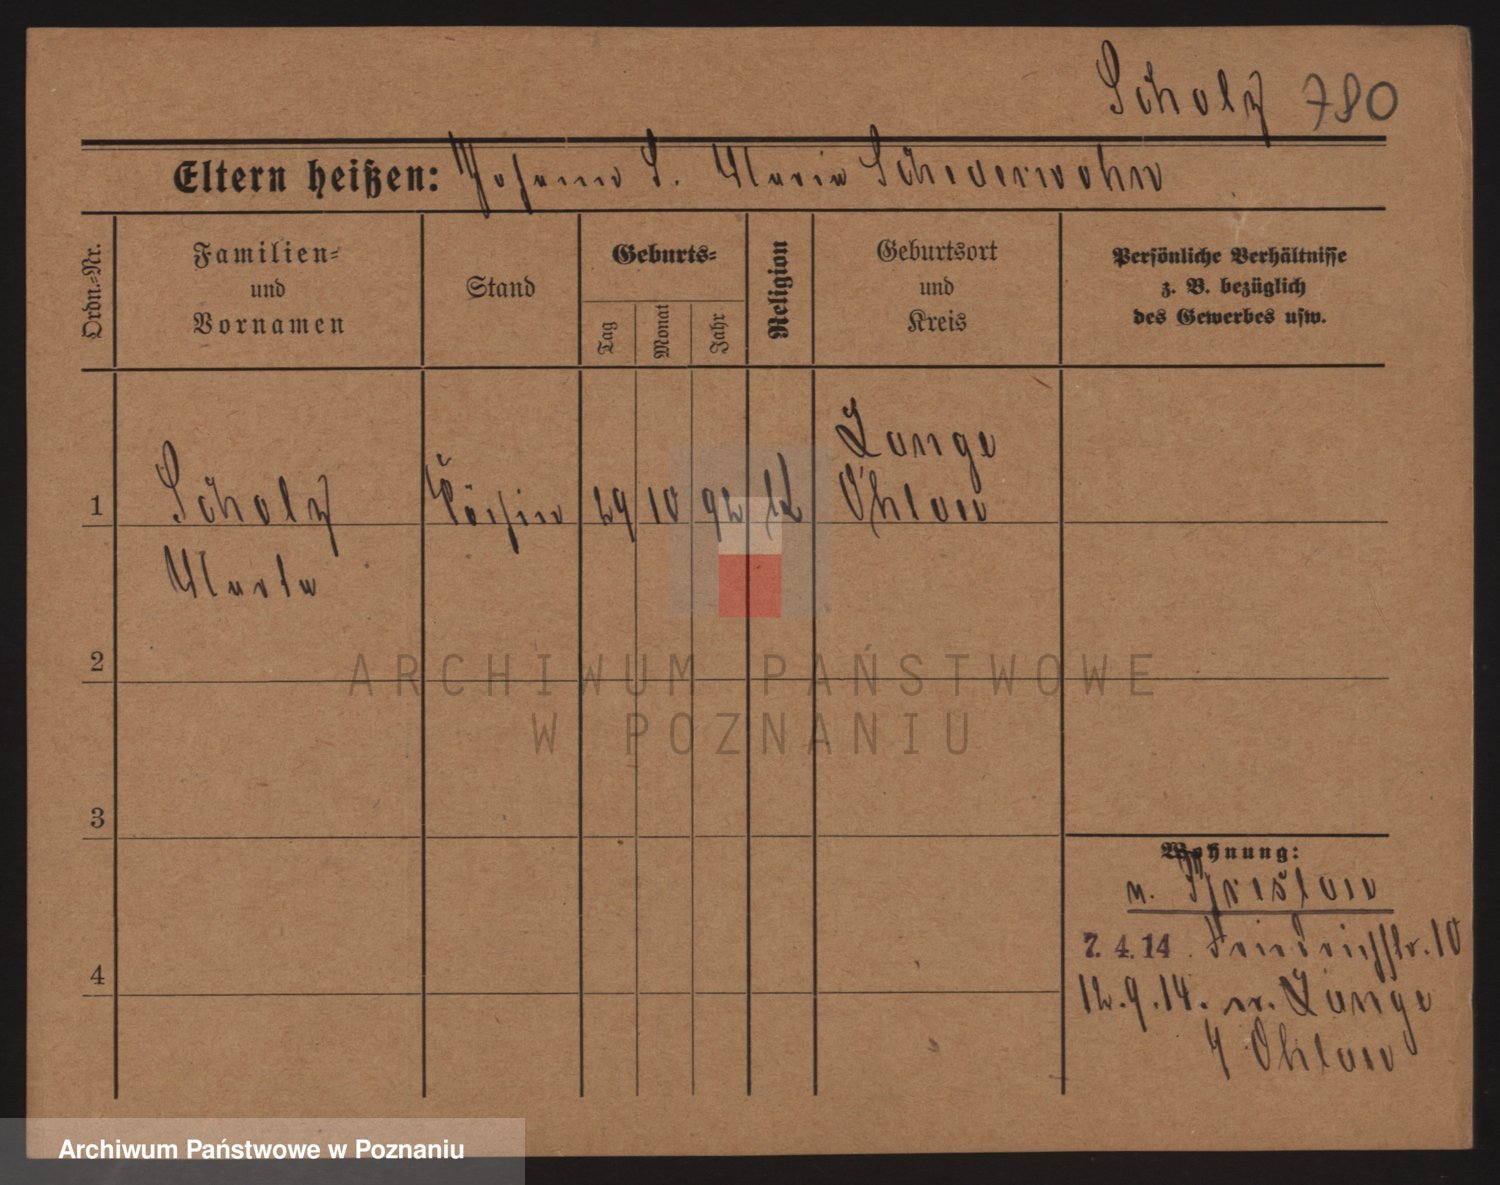 Scholz 780
Eltern heißen: Johann S. Maria Schederwohn
Ordn.-Nr.
Familien-
und
Vornamen
Stand
Geburts-
Tag
Monat
Jahr
Religion
Geburtsort
und
Kreis
Persönliche Verhältnisse
z. B. bezüglich
des Gewerbes usw.
1
Scholz
Marta
Köchin
29
10
92
Lange
Ohlau
2
3
4
Wohnung:
n. Breslau
7. 4. 14. Friedrichstr. 10
12.9.14. n. Lange
Ohlau
ARCHIWUM PAŃSTWOWE
W POZNANIU
Archiwum Państwowe w Poznaniu